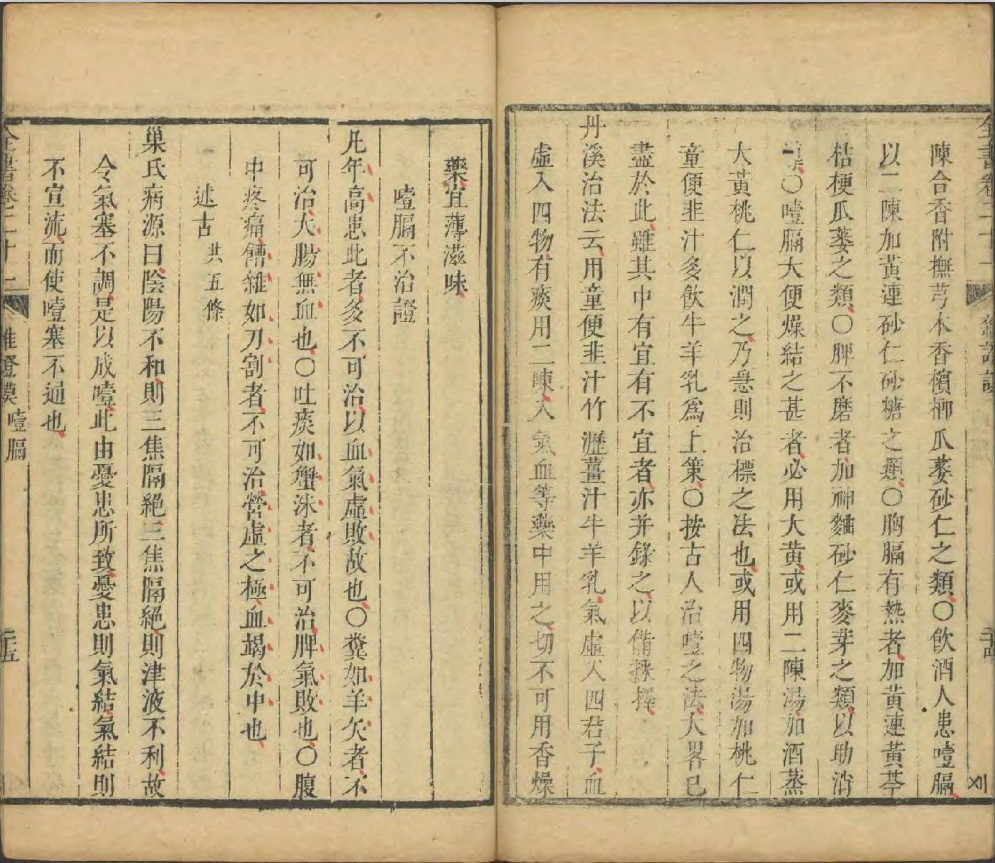 陳合香附撫芎木香檳榔瓜蔞砂仁之類〇飲酒人患噎膈
以二陳加黃連砂仁砂糖之類〇胸膈有熱者加黃連黃芩
桔梗瓜蔞之類〇脾不磨者加神麯砂仁麥芽之類以助消
導〇噎膈大便燥結之甚者必用大黃或用二陳湯加酒蒸
大黃桃仁以潤之乃急則治標之法也或用四物湯加桃仁
童便韭汁多飲牛羊乳爲上策〇按古人治噎之法大畧已
盡於此雖其中有宜有不宜者亦并錄之以備採擇
丹溪治法云用童便韭汁竹瀝薑汁牛羊乳氣虛入四君子血
虛入四物有痰用二陳入氣血等藥中用之切不可用香燥
藥宜薄滋味
噎膈不治證
凡年高患此者多不可治以血氣虛敗故也〇糞如羊矢者不
可治大腸無血也〇吐痰如蟹沫者不可治脾氣敗也〇腹
中疼痛嘈雜如刀割者不可治營虛之極血竭於中也
述古 共五條
巢氏病源曰陰陽不和則三焦隔絕三焦隔絕則津液不利故
令氣塞不調是以成噎此由憂恚所致憂恚則氣結氣結則
不宣流而使噎塞不通也
全書卷二十一 雜證謨 噎膈 二五